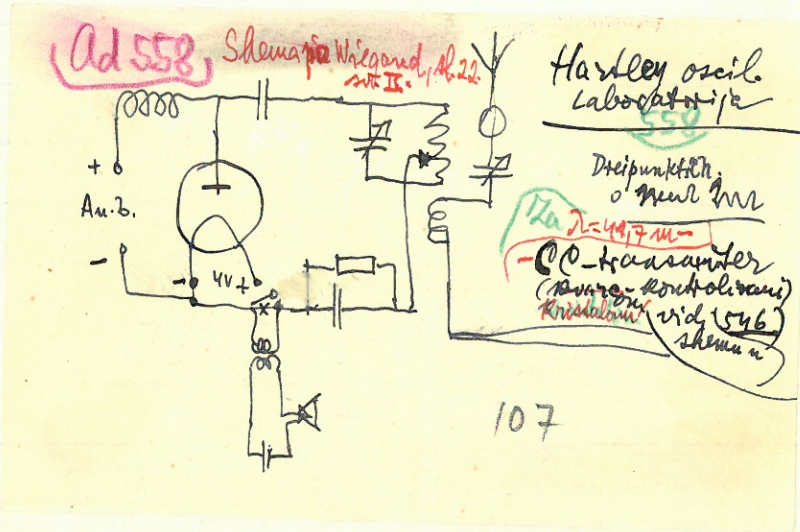 Ad 558
Shema po Wiegand, st. 22
svt. II.
Hartley oscil.
Laboratorija
558
Dreipunktsch.
+
An. b.
-
-
4V +
Za λ=41,7 m
- CC-transmiter
(kvarc-kontrolirani)
Kristalom
vidi (546)
shemu
107